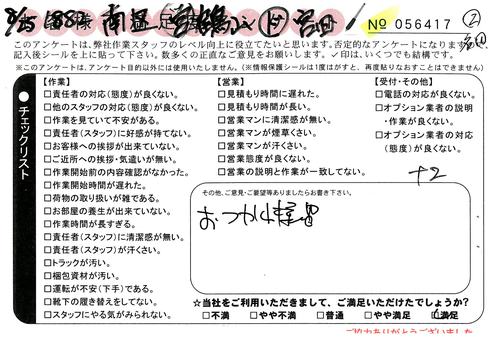 8/25
№ 056417
②
このアンケートは、弊社作業スタッフのレベル向上に役立てたいと思います。否定的なアンケートになります
記入後シールを上に貼って下さい。数多くの正直なご意見をお願いします。✓印は、いくつでも結構です。
※このアンケートは、アンケート目的以外には使用いたしません。(※情報保護シールは1度はがすと、再度貼りなおすことはできません)
●チェックリスト
【作業】
□責任者の対応(態度)が良くない。
□他のスタッフの対応(態度)が良くない。
□作業を見ていて不安がある。
□責任者(スタッフ)に好感が持てない。
□お客様への挨拶が出来ていない。
□ご近所への挨拶・気遣いが無い。
□作業開始前の内容確認がなかった。
□作業開始時間が遅れた。
□荷物の取り扱いが雑である。
□お部屋の養生が出来ていない。
□作業時間が長すぎる。
□責任者(スタッフ)に清潔感が無い。
□責任者(スタッフ)が汗くさい。
□トラックが汚い。
□梱包資材が汚い。
□運転が不安(下手)である。
□靴下の履き替えをしてない。
□スタッフにやる気がみられない。
【営業】
□見積もり時間に遅れた。
□見積もり時間が長い。
□営業マンに清潔感が無い。
□営業マンが煙草くさい。
□営業マンが汗くさい。
□営業態度が良くない。
□営業の説明と作業が一致してない。
【受付・その他】
□電話の対応が良くない。
□オプション業者の説明
・作業が良くない。
□オプション業者の対応
(態度)が良くない。
+2
その他、ご意見・ご要望等ありましたらお書き下さい。
おつかれ様
☆当社をご利用いただきまして、ご満足いただけたでしょうか?
□不満 □やや不満 □普通 □やや満足 ☑満足
ご協力ありがとうございました